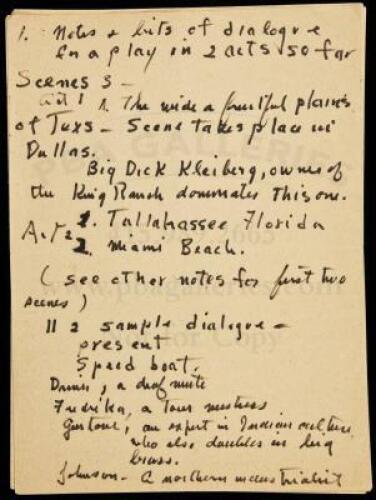 1. Notes & bits of dialogue
for a play in 2 acts so far
Scenes 3 –
Act 1 1. The wide & fruitful plains
of Texs – Scene takes place in
Dallas.
Big Dick Kleiberg, owner of
the King Ranch dominates this one.
Act 2 1. Tallahassee Florida
2. Miami Beach.
(see other notes for first two
scenes)
II 2 sample dialogue –
present
Speed boat.
, a deaf mute
Fredrika, a Tour mistress
Gustave, an expert in Indian culture
who also dabbles in big
brass.
Johnson – A northern industrialist
PBA GALLERIES
www.pbagalleries.com
for Copy